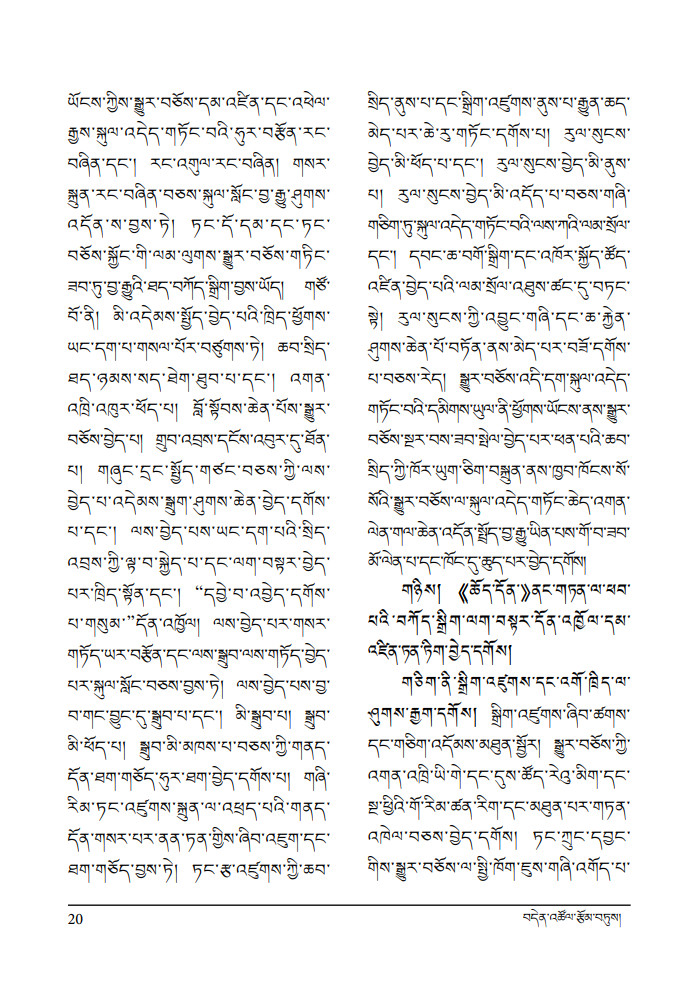 ཡོངས་ཀྱིས་སྒྱུར་བཅོས་དམ་འཛིན་དང་འཕེལ་
རྒྱས་སྐུལ་འདེད་གཏོང་བའི་ཧུར་བརྩོན་རང་
བཞིན་དང་། རང་འགུལ་རང་བཞིན། གསར་
སྐྲུན་རང་བཞིན་བཅས་སྐུལ་སློང་བྱ་རྒྱུ་ཤུགས་
འདོན་ས་བྱས་ཏེ། ཏང་དོ་དམ་དང་ཏང་
བཅོས་སྐྱོང་གི་ལམ་ལུགས་སྒྱུར་བཅོས་གཏིང་
ཟབ་ཏུ་བྱ་རྒྱུའི་ཐད་བཀོད་སྒྲིག་བྱས་ཡོད། གཙོ་
བོ་ནི། མི་འདེམས་སྤྱོད་བྱེད་པའི་ཁྲིད་ཕྱོགས་
ཡང་དག་པ་གསལ་པོར་བཙུགས་ཏེ། ཆབ་སྲིད་
ཐད་ཉམས་སད་ཐེག་ཐུབ་པ་དང་། འགན་
འཁྲི་འཁུར་ཕོད་པ། བློ་སྟོབས་ཆེན་པོས་སྒྱུར་
བཅོས་བྱེད་པ། གྲུབ་འབྲས་དངོས་འབུར་དུ་ཐོན་
པ། གཞུང་དྲང་སྤྱོད་གཙང་བཅས་ཀྱི་ལས་
བྱེད་པ་འདེམས་སྒྲུག་ཤུགས་ཆེན་བྱེད་དགོས་
པ་དང་། ལས་བྱེད་པས་ཡང་དག་པའི་སྲིད་
འབྲས་ཀྱི་ལྟ་བ་སྐྱེད་པ་དང་ལག་བསྟར་བྱེད་
པར་ཁྲིད་སྟོན་དང་། “དབྱེ་བ་འབྱེད་དགོས་
པ་གསུམ་”དོན་འཁྱོལ། ལས་བྱེད་པར་གསར་
གཏོད་ཡར་བརྩོན་དང་ལས་སྒྲུབ་ལས་གཏོད་བྱེད་
པར་སྐུལ་སློང་བཅས་བྱས་ཏེ། ལས་བྱེད་པས་བྱ་
བ་གང་བྱུང་དུ་སྒྲུབ་པ་དང་། མི་སྒྲུབ་པ། སྒྲུབ་
མི་ཕོད་པ། སྒྲུབ་མི་མཁས་པ་བཅས་ཀྱི་གནད་
དོན་ཐག་གཅོད་ཧུར་ཐག་བྱེད་དགོས་པ། གཞི་
རིམ་ཏང་འཛུགས་སྐྲུན་ལ་འཕྲད་པའི་གནད་
དོན་གསར་པར་ནན་ཏན་གྱིས་ཞིབ་འཇུག་དང་
ཐག་གཅོད་བྱས་ཏེ། ཏང་རྩ་འཛུགས་ཀྱི་ཆབ་
སྲིད་ནུས་པ་དང་སྒྲིག་འཛུགས་ནུས་པ་རྒྱུན་ཆད་
མེད་པར་ཆེ་རུ་གཏོང་དགོས་པ། རུལ་སུངས་
བྱེད་མི་ཕོད་པ་དང་། རུལ་སུངས་བྱེད་མི་ནུས་
པ། རུལ་སུངས་བྱེད་མི་འདོད་པ་བཅས་གཞི་
གཅིག་ཏུ་སྐུལ་འདེད་གཏོང་བའི་ལས་ཀའི་ལམ་སྲོལ་
དང་། དབང་ཆ་བགོ་སྒྲིག་དང་འཁོར་སྐྱོད་ཚོད་
འཛིན་བྱེད་པའི་ལམ་སྲོལ་འཐུས་ཚང་དུ་བཏང་
སྟེ། རུལ་སུངས་ཀྱི་འབྱུང་གཞི་དང་ཆ་རྐྱེན་
ཤུགས་ཆེན་པོ་བཏོན་ནས་མེད་པར་བཟོ་དགོས་
པ་བཅས་རེད། སྒྱུར་བཅོས་འདི་དག་སྐུལ་འདེད་
གཏོང་བའི་དམིགས་ཡུལ་ནི་ཕྱོགས་ཡོངས་ནས་སྒྱུར་
བཅོས་སྔར་བས་ཟབ་སྤེལ་བྱེད་པར་ཕན་པའི་ཆབ་
སྲིད་ཀྱི་ཁོར་ཡུག་ཅིག་བསྐྲུན་ནས་ཁྱབ་ཁོངས་སོ་
སོའི་སྒྱུར་བཅོས་ལ་སྐུལ་འདེད་གཏོང་ཆེད་འགན་
ལེན་གལ་ཆེན་འདོན་སྤྲོད་བྱ་རྒྱུ་ཡིན་པས་གོ་བ་ཟབ་
མོ་ལེན་པ་དང་ཁོང་དུ་ཆུད་པར་བྱེད་དགོས།
གཉིས། 《ཆོད་དོན་》ནང་གཏན་ལ་ཕབ་
པའི་བཀོད་སྒྲིག་ལག་བསྟར་དོན་འཁྱོལ་དམ་
འཛིན་ཏན་ཏིག་བྱེད་དགོས།
གཅིག་ནི་སྒྲིག་འཛུགས་དང་འགོ་ཁྲིད་ལ་
ཤུགས་རྒྱག་དགོས། སྒྲིག་འཛུགས་ཞིབ་ཚགས་
དང་གཅིག་འདོམས་མཐུན་སྦྱོར། སྒྱུར་བཅོས་ཀྱི་
འགན་འཁྲི་ཡི་གེ་དང་དུས་ཚོད་རེའུ་མིག་དང་
སྔ་ཕྱིའི་གོ་རིམ་ཚན་རིག་དང་མཐུན་པར་གཏན་
འཁེལ་བཅས་བྱེད་དགོས། ཏང་ཀྲུང་དབྱང་
གིས་སྒྱུར་བཅོས་ལ་སྤྱི་ཁོག་ཇུས་གཞི་འགོད་པ་
20
བདེན་འཚོལ་རྩོམ་བཏུས།